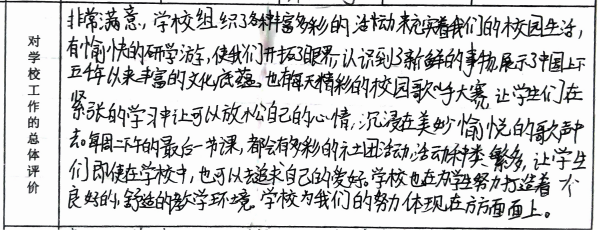 对学校工作的总体评价
非常满意，学校组织了各种丰富多彩的活动来充实着我们的校园生活，
有愉快的研学游，使我们开拓了眼界，认识到了新鲜的事物，展示了中国上下
五千年以来丰富的文化底蕴。也有每天精彩的校园歌咏大赛，让学生们在
紧张的学习中让可以放松自己的心情，沉浸在美妙愉悦的歌声中
去。每周二下午的最后一节课，都会有多彩的社团活动，活动种类繁多，让学生
们即使在学校中，也可以去追求自己的爱好。学校也在为学生努力打造着一个
良好的，舒适的教学环境。学校为我们的努力体现在方方面面上。